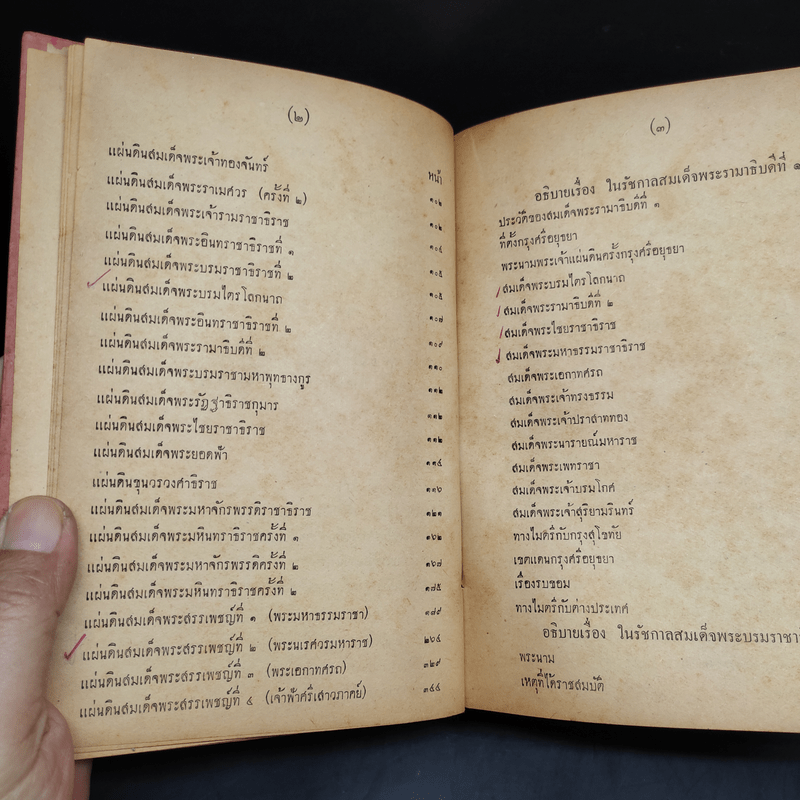 (๒)
หน้า
แผ่นดินสมเด็จพระเจ้าทองจันทร์ ๑๐๒
แผ่นดินสมเด็จพระราเมศวร (ครั้งที่ ๒) ๑๐๒
แผ่นดินสมเด็จพระเจ้ารามราชาธิราช ๑๐๔
แผ่นดินสมเด็จพระอินทราชาธิราชที่ ๑ ๑๐๕
แผ่นดินสมเด็จพระบรมราชาธิราชที่ ๒ ๑๐๕
แผ่นดินสมเด็จพระบรมไตรโลกนาถ ๑๐๗
แผ่นดินสมเด็จพระอินทราชาธิราชที่ ๒ ๑๐๙
แผ่นดินสมเด็จพระรามาธิบดีที่ ๒ ๑๑๐
แผ่นดินสมเด็จพระบรมราชามหาพุทธางกูร ๑๑๒
แผ่นดินสมเด็จพระรัฏฐาธิราชกุมาร ๑๑๒
แผ่นดินสมเด็จพระไชยราชาธิราช ๑๑๒
แผ่นดินสมเด็จพระยอดฟ้า ๑๑๔
แผ่นดินขุนวรวงศาธิราช ๑๑๖
แผ่นดินสมเด็จพระมหาจักรพรรดิราชาธิราช ๑๒๑
แผ่นดินสมเด็จพระมหินทราธิราชครั้งที่ ๑ ๑๖๒
แผ่นดินสมเด็จพระมหาจักรพรรดิครั้งที่ ๒ ๑๖๗
แผ่นดินสมเด็จพระมหินทราธิราชครั้งที่ ๒ ๑๗๕
แผ่นดินสมเด็จพระสรรเพชญ์ที่ ๑ (พระมหาธรรมราชา) ๑๘๙
แผ่นดินสมเด็จพระสรรเพชญ์ที่ ๒ (พระนเรศวรมหาราช) ๒๖๔
แผ่นดินสมเด็จพระสรรเพชญ์ที่ ๓ (พระเอกาทศรถ) ๓๒๙
แผ่นดินสมเด็จพระสรรเพชญ์ที่ ๔ (เจ้าฟ้าศรีเสาวภาคย์) ๓๔๔
(๓)
อธิบายเรื่อง ในรัชกาลสมเด็จพระรามาธิบดีที่ ๑
ประวัติของสมเด็จพระรามาธิบดีที่ ๑
ที่ตั้งกรุงศรีอยุธยา
พระนามพระเจ้าแผ่นดินครั้งกรุงศรีอยุธยา
สมเด็จพระบรมไตรโลกนาถ
สมเด็จพระรามาธิบดีที่ ๒
สมเด็จพระไชยราชาธิราช
สมเด็จพระมหาธรรมราชาธิราช
สมเด็จพระเอกาทศรถ
สมเด็จพระเจ้าทรงธรรม
สมเด็จพระเจ้าปราสาททอง
สมเด็จพระนารายณ์มหาราช
สมเด็จพระเพทราชา
สมเด็จพระเจ้าบรมโกศ
สมเด็จพระเจ้าสุริยามรินทร์
ทางไมตรีกับกรุงสุโขทัย
เขตแดนกรุงศรีอยุธยา
เรื่องรบขอม
ทางไมตรีกับต่างประเทศ
อธิบายเรื่อง ในรัชกาลสมเด็จพระบรมราชา
พระนาม
เหตุที่ได้ราชสมบัติ